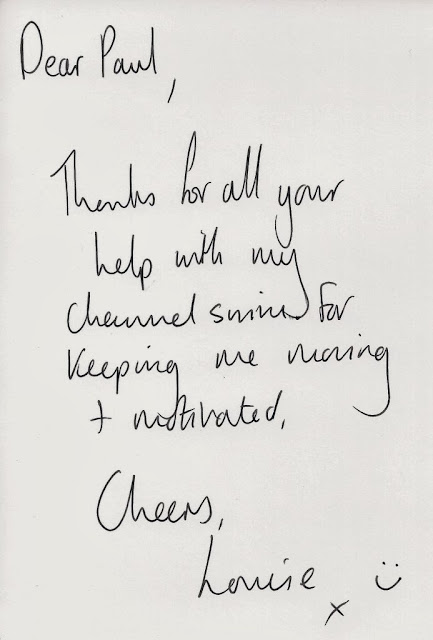 Dear Paul,
Thanks for all your
help with my
channel swim & for
keeping me moving
+ motivated.
Cheers,
Louise x :)